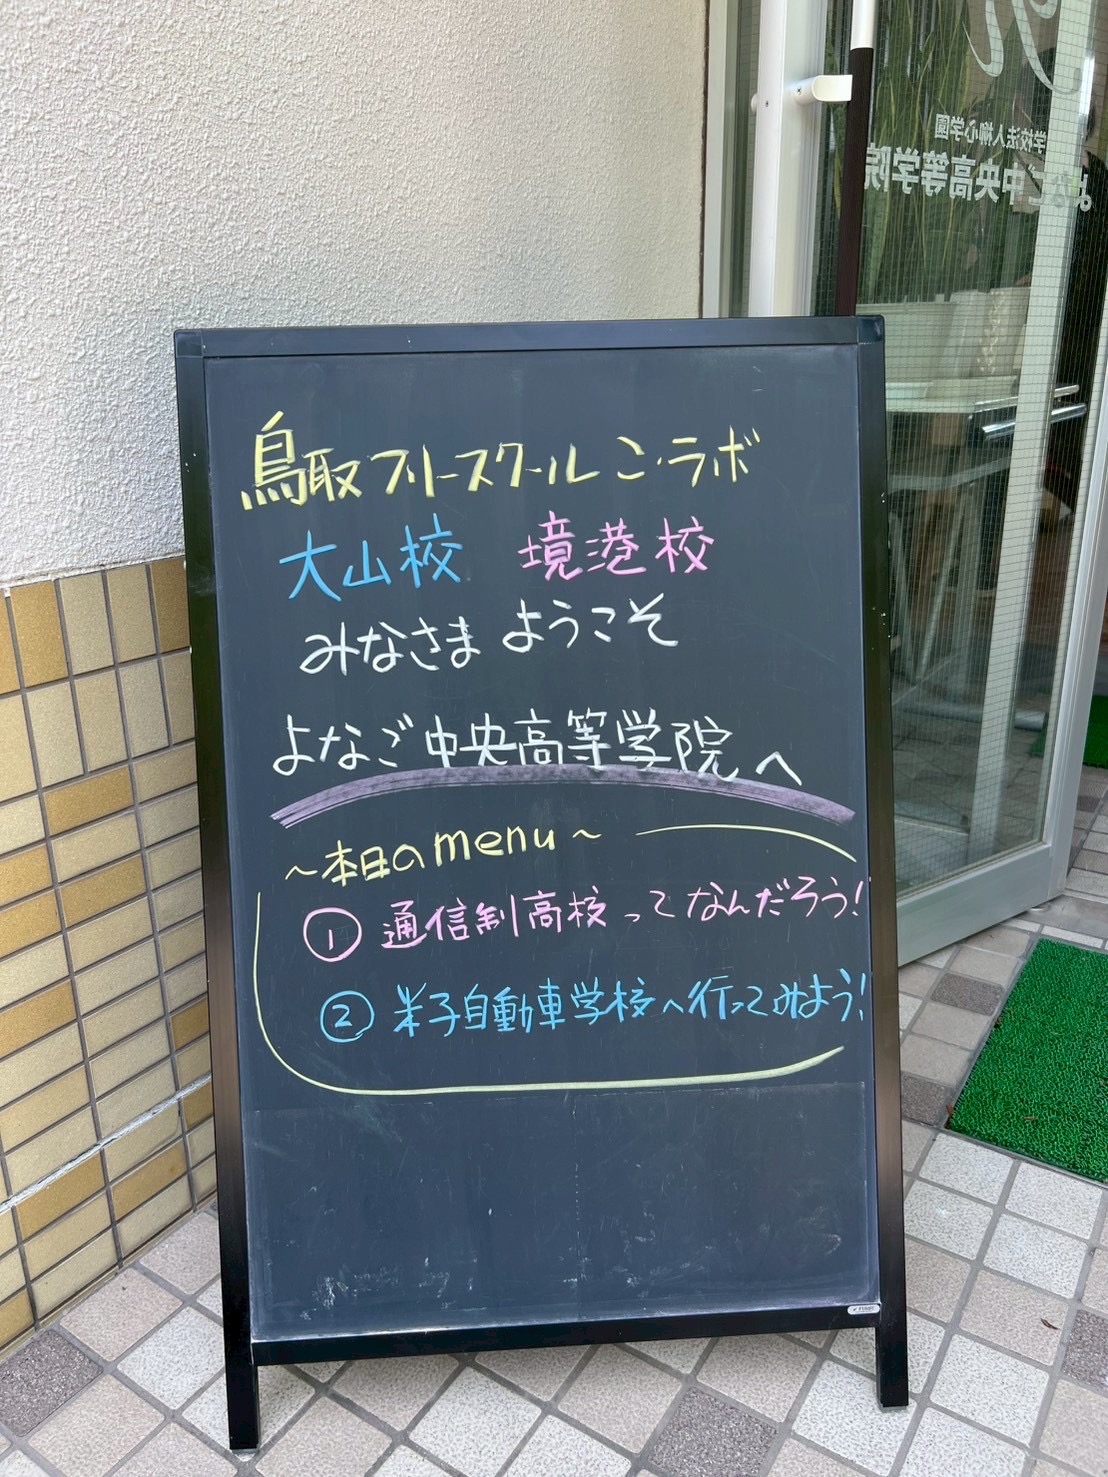 学校法人柳心学園
よなご中央高等学院
鳥取フリースクールこ・ラボ
大山校 境港校
みなさま ようこそ
よなご中央高等学院へ
～本日のmenu～
① 通信制高校ってなんだろう!
② 米子自動車学校へ行ってみよう!